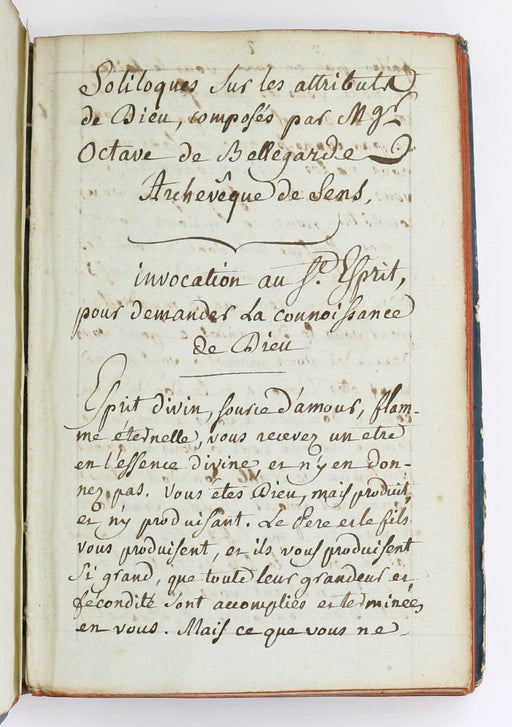 Soliloques sur les attributs
de Dieu, composés par Mgr
Octave de Bellegarde
Archevêque de Sens,
invocation au St. Esprit,
pour demander la connoissance
de Dieu
Esprit divin, source d'amour, flam-
me éternelle, vous recevez un etre
en l'essence divine, et n'y en don-
nez pas. Vous étes Dieu, mais produit,
et n'y produisant. Le Pere et le fils
vous produisent, et ils vous produisent
si grand, que toute leur grandeur et
fécondité sont accomplies et terminées
en vous. Mais ce que vous ne